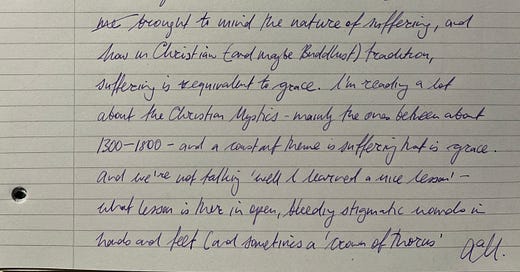 me brought to mind the nature of suffering, and
how in Christian (and maybe Buddhist) tradition,
suffering is equivalent to grace. I'm reading a lot
about the Christian Mystics - mainly the ones between about
1300-1800 - and a constant theme is suffering that is grace.
And we're not talking 'well I learned a nice lesson' -
what lesson is there in open, bleeding stigmatic wounds in
hands and feet (and sometimes a 'crown of thorns'